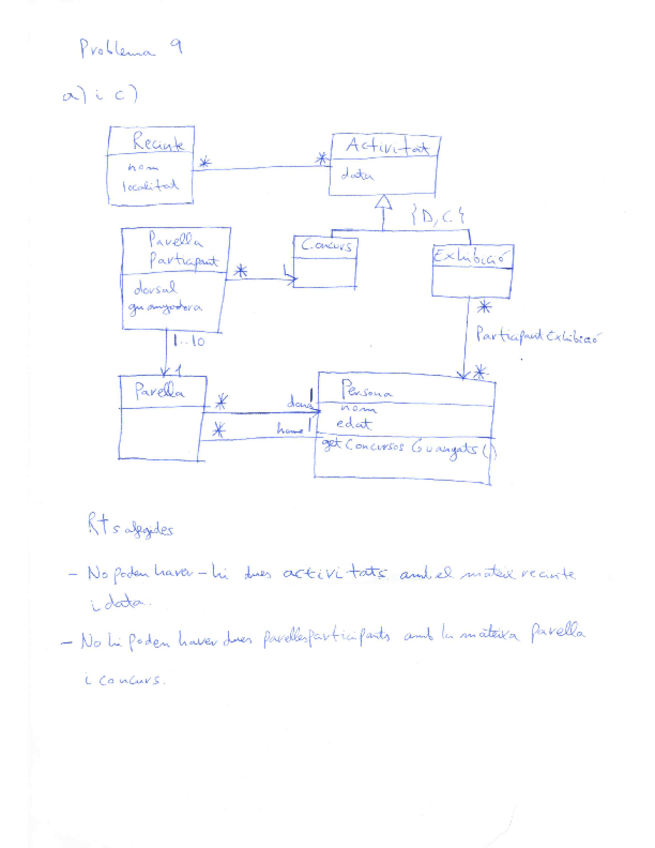 Problema 9
a) i c)
Recinte
nom
localitat
*
*
Activitat
data
{D,C}
Parella
Participant
dorsal
guanyadora
*
1
Concurs
Exhibició
*
ParticipantExhibició
*
1..10
1
Parella
*
dona 1
*
home 1
Persona
nom
edat
getConcursosGuanyats()
RTs afegides
- No poden haver-hi dues activitats amb el mateix recinte
i data.
- No hi poden haver dues parellesparticipants amb la mateixa parella
i concurs.